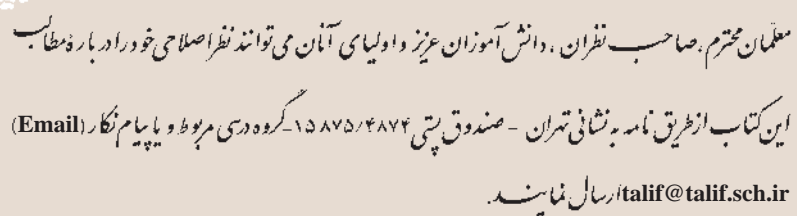 معلّمان محترم، صاحب نظران، دانش آموزان عزیز و اولیای آنان می توانند نظر اصلاحی خود را دربارهٔ مطالب
این کتاب از طریق نامه به نشانی تهران - صندوق پستی ۱۵۸۷۵/۴۸۷۴ - گروه درسی مربوط و یا پیام نگار (Email)
talif@talif.sch.ir ارسال نمایند.